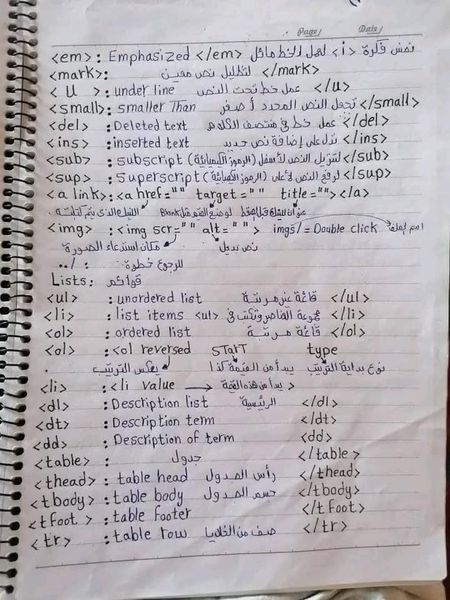 Page/ Date/
<em>: Emphasized </em> نفس فكرة <i> لعمل الخط مائل
<mark>: لتظليل نص معين </mark>
<U>: under line عمل خط تحت النص </u>
<small>: smaller Than تجعل النص المحدد أصغر </small>
<del>: Deleted text عمل خط في منتصف الكلام </del>
<ins>: inserted text تدل على إضافة نص جديد </ins>
<sub>: subscript لتنزيل النص لأسفل (الرموز الكيميائية) </sub>
<sup>: Superscript لرفع النص لأعلى (الرموز الكيميائية) </sup>
<a link>: <a href="" target="" title=""></a>
<img>: <img scr="" alt="" > imgs/ = Double click
نص بديل مكان استدعاء الصورة
للرجوع خطوة: ../
Lists: قوائم
<ul>: unordered list قائمة غير مرتبة </ul>
<li>: list items <ul> مجموعة العناصر وتكتب في </li>
<ol>: ordered list قائمة مرتبة </ol>
<ol>: <ol reversed START type
يعكس الترتيب يبدأ من القيمة كذا نوع بداية الترتيب
<li>: <li value → يبدأ من هذه القيمة >
<dl>: Description list الرئيسية </dl>
<dt>: Description term </dt>
<dd>: Description of term <dd>
<table>: جدول </table>
<thead>: table head رأس الجدول </thead>
<tbody>: table body جسم الجدول </tbody>
<tfoot>: table footer </tFoot>
<tr>: table row صف من الخلايا </tr>